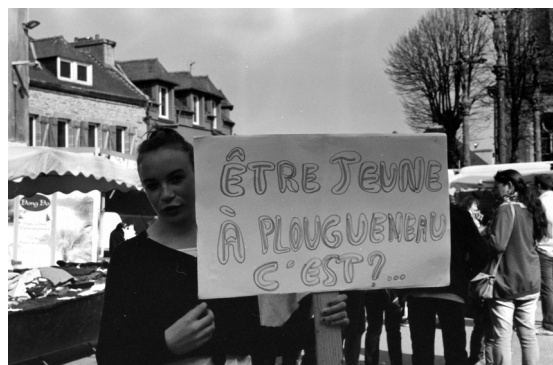 Dong Do
ÊTRE JEUNE
À PLOUGUENEAU
C'EST?...